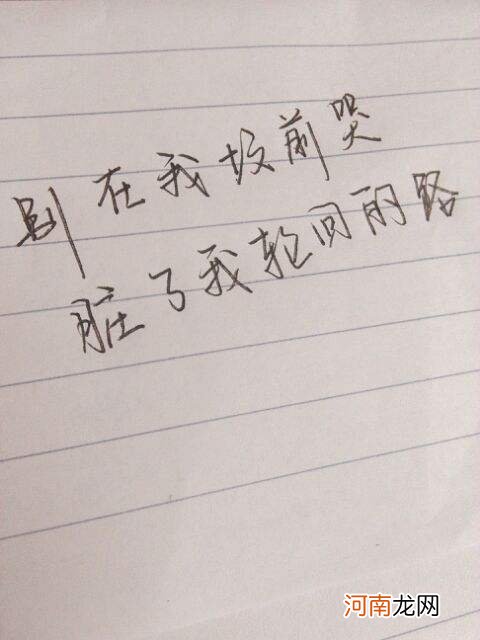 别在我坟前哭
脏了我轮回的路
河南龙网